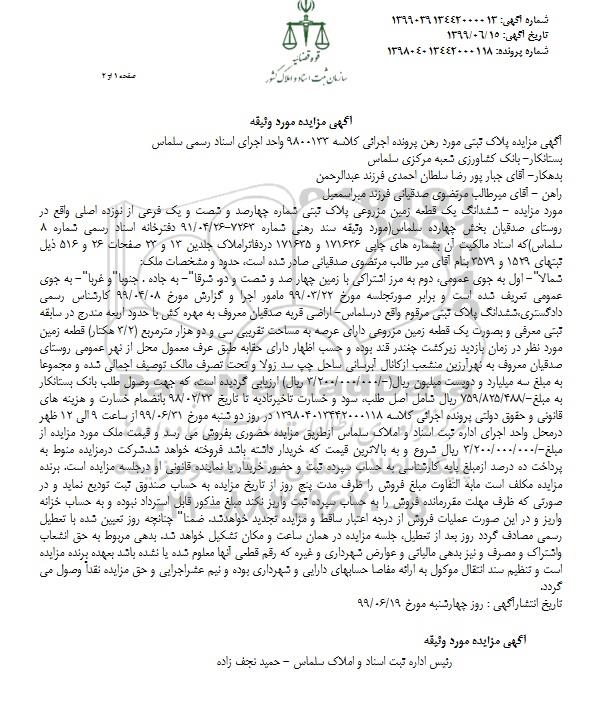 شماره آگهی: ۱۳۹۹۰۳۹۱۳۴۴۲۰۰۰۰۱۳
تاریخ آگهی: ۱۳۹۹/۰۶/۱۵
شماره پرونده: ۱۳۹۸۰۴۰۱۳۴۴۲۰۰۰۱۱۸
قوه قضائیه
سازمان ثبت اسناد و املاک کشور
صفحه ۱ از ۲
آگهی مزایده مورد وثیقه
آگهی مزایده پلاک ثبتی مورد رهن پرونده اجرائی کلاسه ۹۸۰۰۱۳۳ واحد اجرای اسناد رسمی سلماس
بستانکار- بانک کشاورزی شعبه مرکزی سلماس
بدهکار- آقای جبار پور رضا سلطان احمدی فرزند عبدالرحمن
راهن - آقای میرطالب مرتضوی صدقیانی فرزند میراسمعیل
مورد مزایده - ششدانگ یک قطعه زمین مزروعی پلاک ثبتی شماره چهارصد و شصت و یک فرعی از نوزده اصلی واقع در
روستای صدقیان بخش چهارده سلماس(مورد وثیقه سند رهنی شماره ۷۲۶۳-۹۱/۰۴/۲۶ دفترخانه اسناد رسمی شماره ۸
سلماس)که اسناد مالکیت آن بشماره های چاپی ۱۷۱۶۳۶ و ۱۷۱۶۳۵ دردفاتراملاک جلدین ۱۳ و ۲۳ صفحات ۲۶ و ۵۱۶ ذیل
ثبتهای ۱۵۲۹ و ۳۵۷۹ بنام آقای میر طالب مرتضوی صدقیانی صادر شده است، حدود و مشخصات ملک:
شمالا"- اول به جوی عمومی، دوم به مرز اشتراکی با زمین چهار صد و شصت و دو، شرقا"- به جاده ، جنوبا"و غربا"- به جوی
عمومی تعریف شده است و برابر صورتجلسه مورخ ۹۹/۰۳/۲۲ مامور اجرا و گزارش مورخ ۹۹/۰۴/۰۸ کارشناس رسمی
دادگستری،ششدانگ پلاک ثبتی مرقوم واقع درسلماس- اراضی قریه صدقیان معروف به مهره کش با حدود اربعه مندرج در سابقه
ثبتی معرفی و بصورت یک قطعه زمین مزروعی دارای عرصه به مساحت تقریبی سی و دو هزار مترمربع (۳/۲ هکتار) قطعه زمین
مورد نظر در زمان بازدید زیرکشت چغندر قند بوده و حسب اظهار دارای حقابه طبق عرف معمول محل از نهر عمومی روستای
صدقیان معروف به نهرآرزین منشعب ازکانال آبرسانی ساحل چپ سد زولا و تحت تصرف مالک توصیف اجمالی شده و مجموعا
به مبلغ سه میلیارد و دویست میلیون ریال(-/۳/۲۰۰/۰۰۰/۰۰۰ ریال) ارزیابی گردیده است، که جهت وصول طلب بانک بستانکار
به مبلغ-/۷۵۹/۸۲۵/۴۸۸ ریال شامل اصل طلب، سود و خسارت تاخیرتادیه تا تاریخ ۹۸/۰۲/۲۳ بانضمام خسارت و هزینه های
قانونی و حقوق دولتی پرونده اجرائی کلاسه ۱۳۹۸۰۴۰۱۳۴۴۲۰۰۰۱۱۸ در روز دو شنبه مورخ ۹۹/۰۶/۳۱ از ساعت ۹ الی ۱۲ ظهر
درمحل واحد اجرای اداره ثبت اسناد و املاک سلماس ازطریق مزایده حضوری بفروش می رسد و قیمت ملک مورد مزایده از
مبلغ-/۳/۲۰۰/۰۰۰/۰۰۰ ریال شروع و به بالاترین قیمت که خریدار داشته باشد فروخته خواهد شد.شرکت درمزایده منوط به
پرداخت ده درصد ازمبلغ پایه کارشناسی به حساب سپرده ثبت و حضور خریدار یا نماینده قانونی او درجلسه مزایده است. برنده
مزایده مکلف است مابه التفاوت مبلغ فروش را ظرف مدت پنج روز از تاریخ مزایده به حساب صندوق ثبت تودیع نماید و در
صورتی که ظرف مهلت مقررمانده فروش را به حساب سپرده ثبت واریز نکند مبلغ مذکور قابل استرداد نبوده و به حساب خزانه
واریز و در این صورت عملیات فروش از درجه اعتبار ساقط و مزایده تجدید خواهدشد. ضمنا" چنانچه روز تعیین شده با تعطیل
رسمی مصادف گردد روز بعد از تعطیل، جلسه مزایده در همان ساعت و مکان تشکیل خواهد شد. بدهی مربوط به حق انشعاب
واشتراک و مصرف و نیز بدهی مالیاتی و عوارض شهرداری و غیره که رقم قطعی آنها معلوم شده یا نشده باشد بعهده برنده مزایده
است و تنظیم سند انتقال موکول به ارائه مفاصا حسابهای دارایی و شهرداری بوده و نیم عشراجرایی و حق مزایده نقداً وصول می
گردد.
تاریخ انتشارآگهی : روز چهارشنبه مورخ ۹۹/۰۶/۱۹
آگهی مزایده مورد وثیقه
رئیس اداره ثبت اسناد و املاک سلماس - حمید نجف زاده